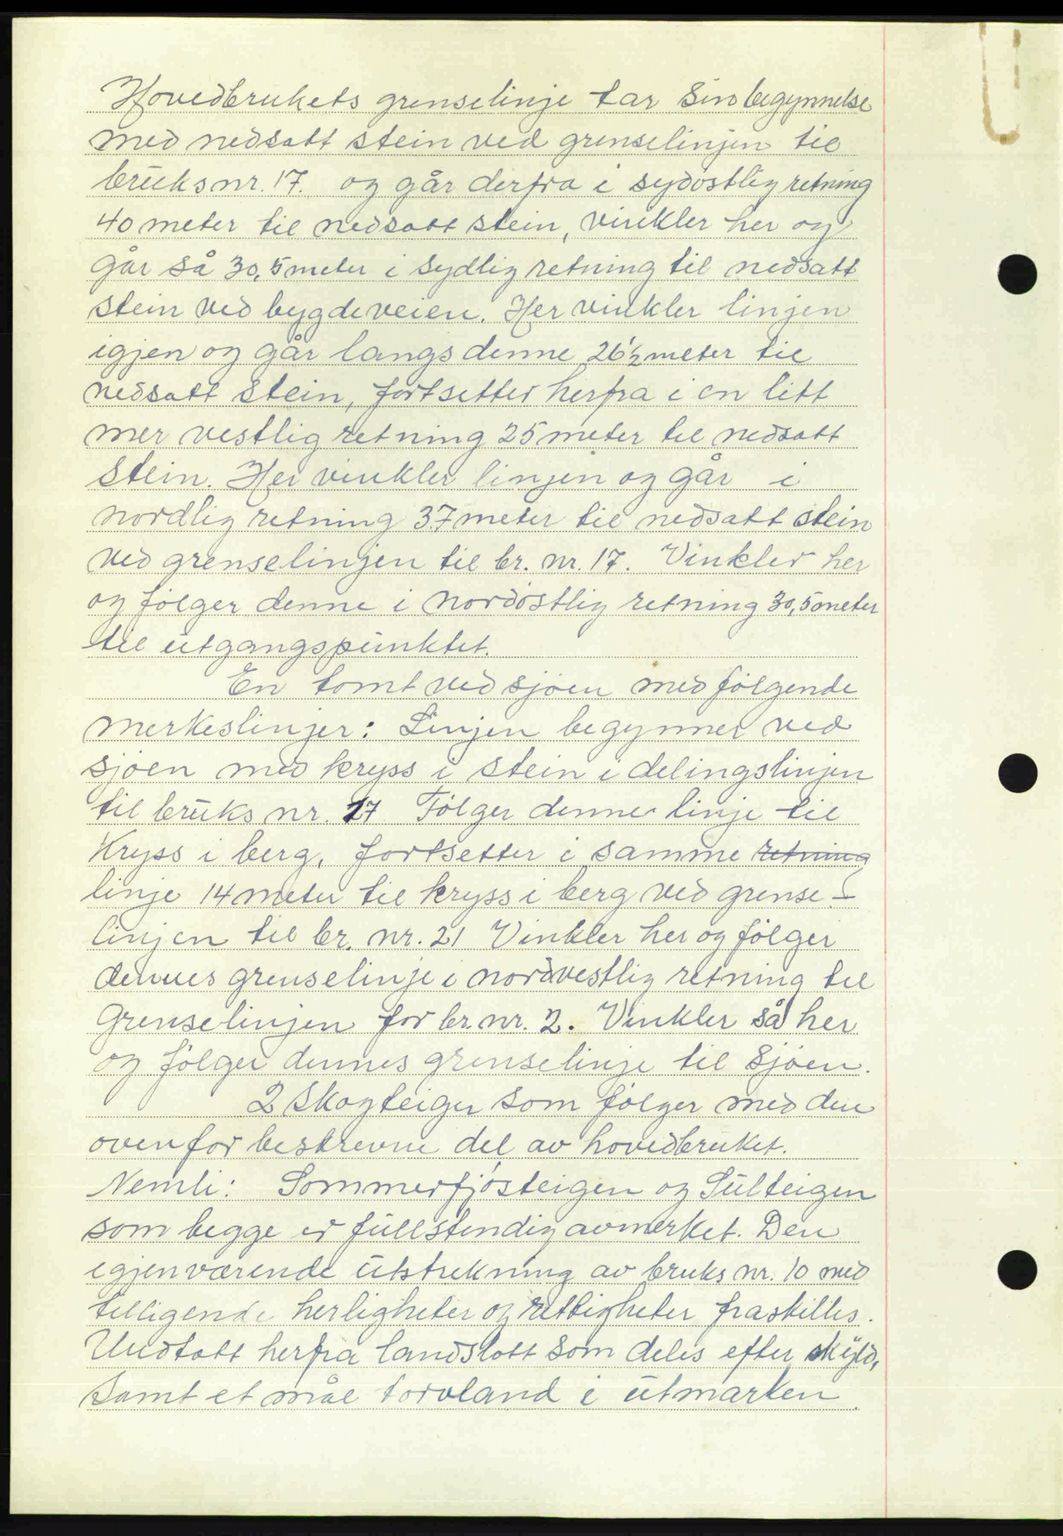 Hovedbrukets grenselinje tar sin begynnelse
med nedsatt stein ved grenselinjen til
bruksnr. 17. og går derfra i sydøstlig retning
40 meter til nedsatt stein, vinkler her og
går så 30,5 meter i sydlig retning til nedsatt
stein ved bygdeveien. Her vinkler linjen
igjen og går langs denne 26½ meter til
nedsatt stein, fortsetter herfra i en litt
mer vestlig retning 25 meter til nedsatt
stein. Her vinkler linjen og går i
nordlig retning 37 meter til nedsatt stein
ved grenselinjen til br. nr. 17. Vinkler her
og følger denne i nordøstlig retning 30,5 meter
til utgangspunktet.
En tomt ved sjøen med følgende
merkeslinjer: Linjen begynner ved
sjøen med kryss i stein i delingslinjen
til bruks nr. 17 Følger denne linje til
Kryss i berg, fortsetter i samme retning
linje 14 meter til kryss i berg ved grense-
linjen til br. nr. 21 Vinkler her og følger
dennes grenselinje i nordvestlig retning til
Grenselinjen for br. nr. 2. Vinkler så her
og følger dennes grenselinje til sjøen.
2 skogteiger som følger med den
ovenfor beskrevne del av hovedbruket.
Nemli: Sommerfjøsteigen og Sulteigen
som begge er fullstendig avmerket. Den
igjenværende utstrekning av bruks nr. 10 med
tilligende herligheter og rettigheter fraskilles.
Undtatt herfra landslott som deles efter skyld,
Samt et mål torvland i utmarken.